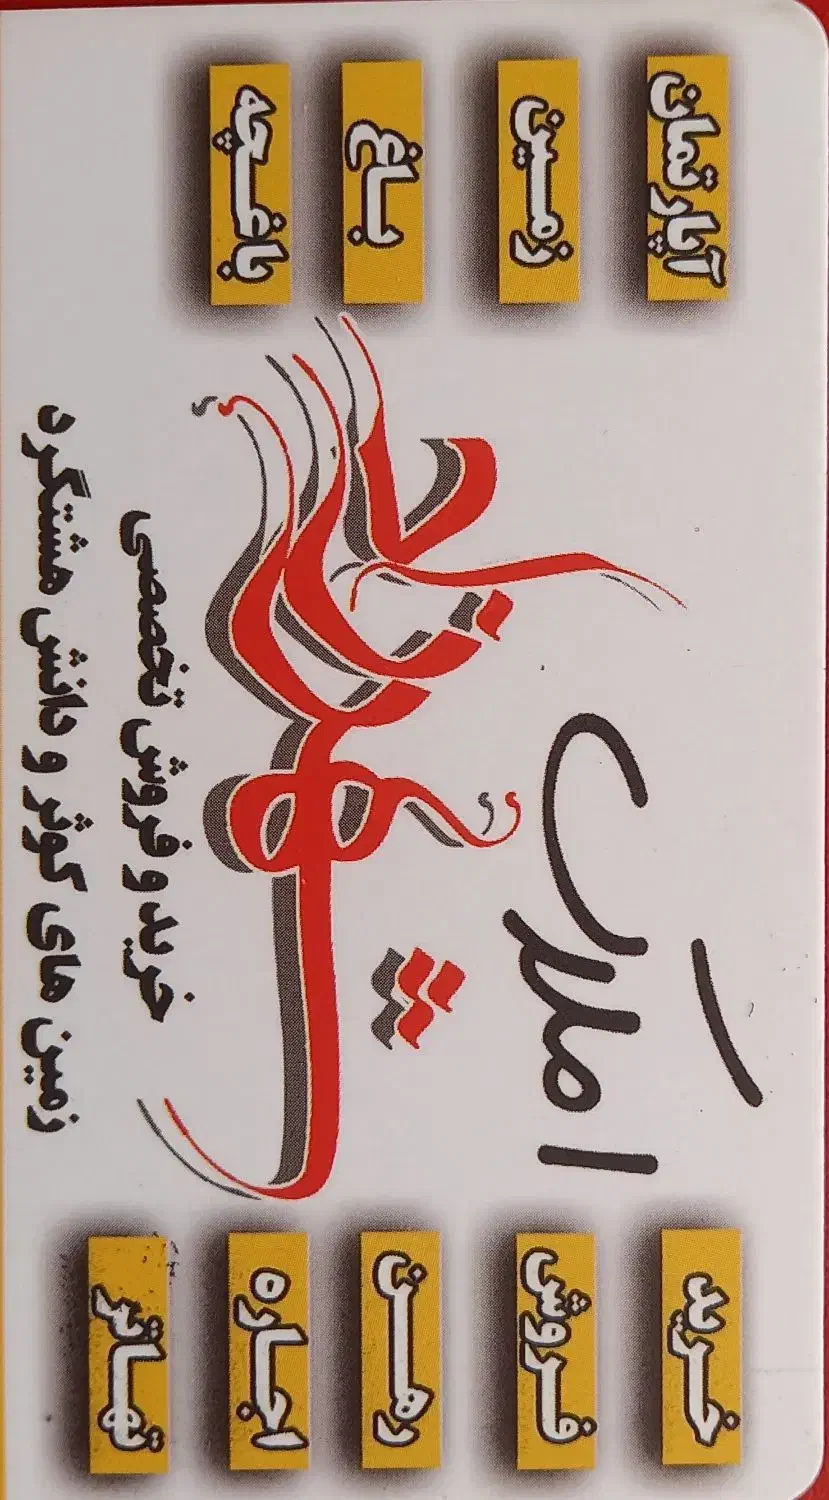 املاک
شهرزاد
خرید و فروش تخصصی
زمین های کوثر و دانش هشتگرد
خرید
فروش
رهن
اجاره
تهاتر
آپارتمان
زمین
باغ
باغچه